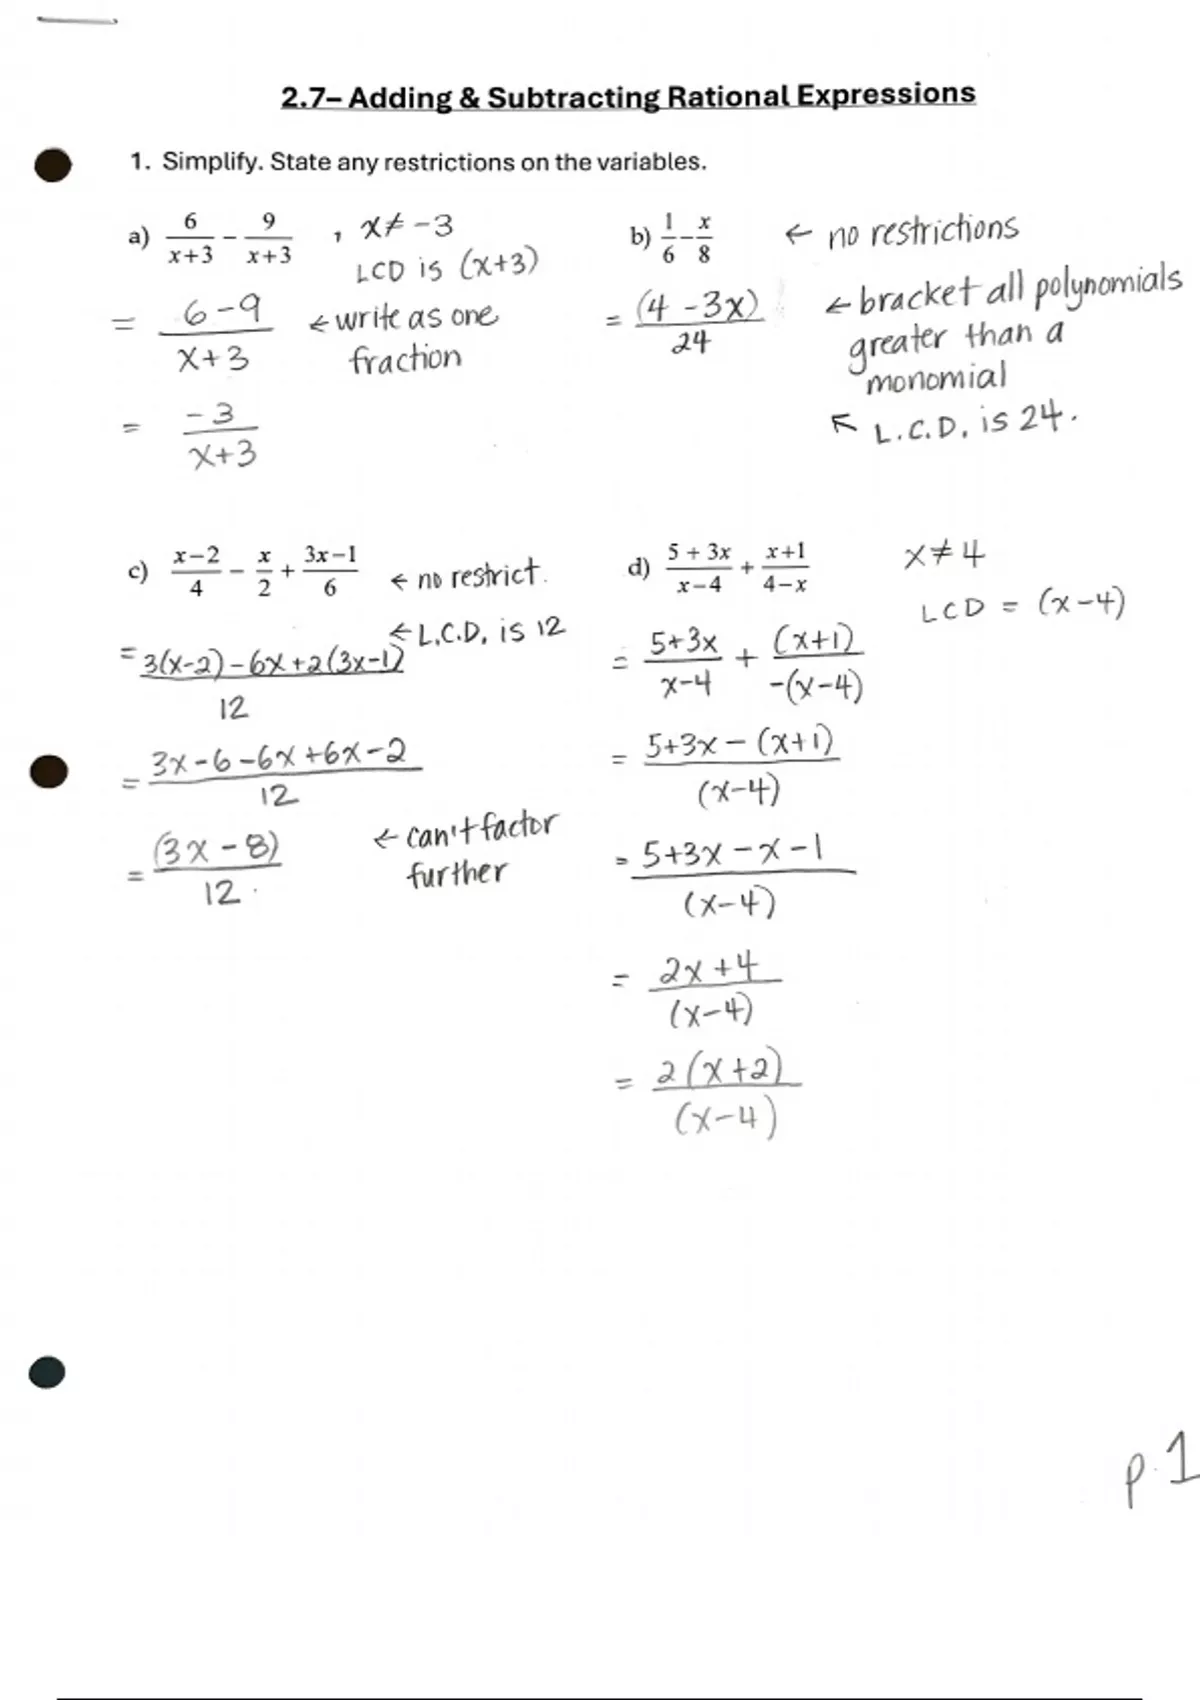 2.7– Adding & Subtracting Rational Expressions
1. Simplify. State any restrictions on the variables.
a) 6/(x+3) − 9/(x+3) , x≠-3
LCD is (x+3)
= (6-9)/(x+3) ← write as one
fraction
= -3/(x+3)
b) 1/6 − x/8 ← no restrictions
= (4-3x)/24 ← bracket all polynomials
greater than a
monomial
↖ L.C.D. is 24.
c) (x−2)/4 − x/2 + (3x−1)/6 ← no restrict.
← L.C.D. is 12
= 3(x-2)-6x+2(3x-1)/12
= 3x-6-6x+6x-2/12
= (3x-8)/12 ← can't factor
further
d) (5+3x)/(x−4) + (x+1)/(4−x) x≠4
LCD = (x-4)
= 5+3x/x-4 + (x+1)/-(x-4)
= 5+3x-(x+1)/(x-4)
= 5+3x-x-1/(x-4)
= 2x+4/(x-4)
= 2(x+2)/(x-4)
p.1